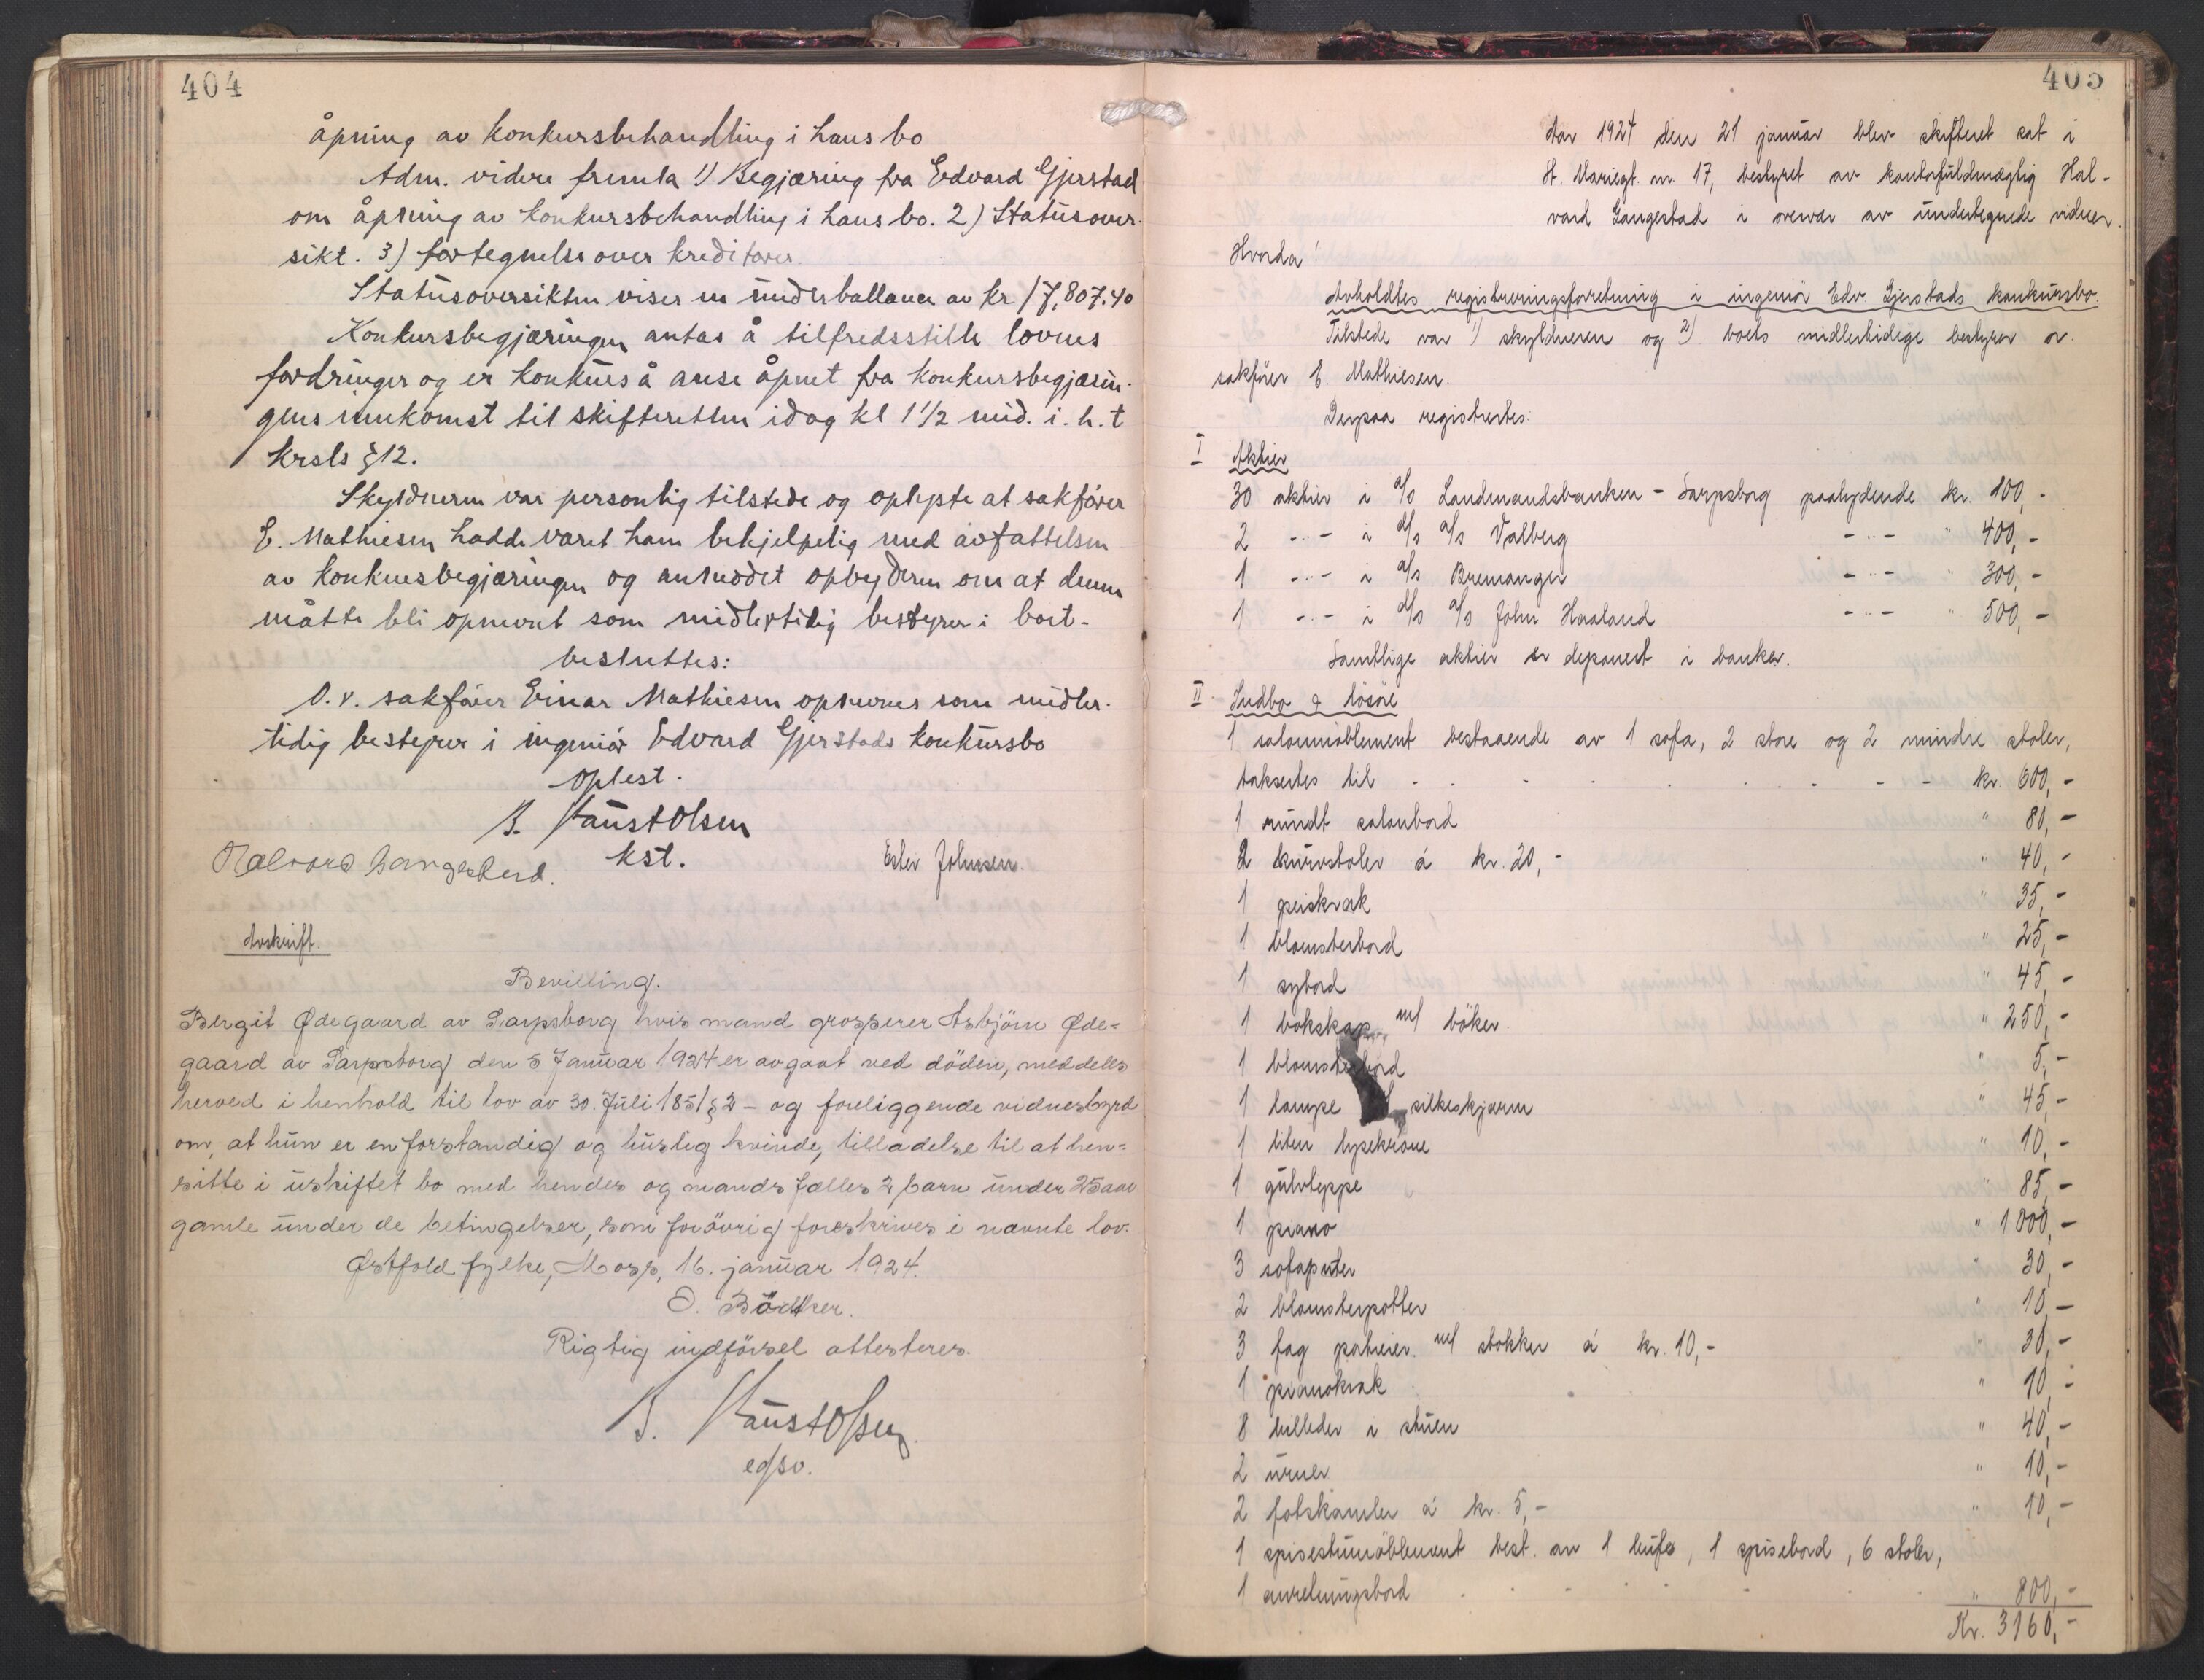 404
åpning av konkursbehandling i hans bo
Adm. videre fremla 1) Begjæring fra Edvard Gjerstad
om åpning av konkursbehandling i hans bo. 2) Statusover-
sikt. 3) fortegnelse over kreditorer.
Statusoversikten viser en underballance av kr 17,807.40
Konkursbegjæringen antas å tilfredsstille lovens
fordringer og er konkurs å anse åpnet fra konkursbegjærin-
gens innkomst til skifteretten idag kl 1 1/2 mid. i. h. t
krsls §12.
Skyldneren var personlig tilstede og oplyste at sakfører
E. Mathiesen hadde været ham behjelpelig med avfattelsen
av konkursbegjæringen og anmodet opbyderen om at denne
måtte bli opnevnt som midlertidig bestyrer i boet-
besluttes:
O.r. sakfører Einar Mathiesen opnevnes som midler-
tidig bestyrer i ingeniør Edvard Gjerstads konkursbo
Oplest.
B. Faust Olsen
kst.
Halvard Langestad.
Ester Johnsen
Avskrift.
Bevilling.
Bergit Ødegaard av Sarpsborg hvis mand grosserer Asbjörn Øde-
gaard av Sarpsborg den 5 Januar 1924 er avgaat ved döden, meddeles
herved i henhold til lov av 30. Juli 1851 § 2 - og foreliggende vidnesbyrd
om, at hun er en forstandig og huslig kvinde, tilladelse til at hen-
sitte i uskiftet bo med hendes og mands fælles 2 barn under 25 aar
gamle under de betingelser, som forövrig foreskrives i nævnte lov.
Østfold fylke, Moss, 16. januar 1924.
O. Bödtker.
Rigtig indförsel attesteres.
B. Faust Olsen
edsv.
405
Aar 1924 den 21 januar blev skifteret sat i
St. Mariegt. nr. 17, bestyret av kontorfuldmægtig Hal-
vard Langestad i overvær av undertegnede vidner.
Hvorda!
Avholdtes registreringsforretning i ingeniör Edv. Gjerstads konkursbo.
Tilstede var 1) skyldneren og 2) boets midlertidige bestyrer or.
sakförer E. Mathiesen.
Derpaa registrertes:
I Aktier
30 aktier i a/s Landmandsbanken - Sarpsborg paalydende kr. 100,-
2 -"- i d/s a/s Valberg -"- " 400,-
1 -"- i a/s Bremanger -"- " 300,-
1 -"- i d/s a/s John Haaland -"- " 500,-
Samtlige aktier er deponert i banker.
II Indbo & lösöre
1 salonmöblement bestaaende av 1 sofa, 2 store og 2 mindre stoler,
taksertes til - - - - - kr. 600,-
1 rundt salonbord " 80,-
2 kurvstoler á kr. 20,- " 40,-
1 peiskrak " 35,-
1 blomsterbord " 25,-
1 sybord " 45,-
1 bokskap m/ böker " 250,-
1 blomsterbord " 5,-
1 lampe silkeskjærm " 45,-
1 liten lysekrone " 10,-
1 gulvteppe " 85,-
1 piano " 1000,-
3 sofaputer " 30,-
2 blomsterpotter " 10,-
3 fag portierer m/ stokker á kr. 10,- " 30,-
1 pianokrak " 10,-
8 billeder i stuen " 40,-
2 urner " 10,-
2 fotskamler á kr. 5,- " 10,-
1 spisestuemöblement best. av 1 bufe, 1 spisebord, 6 stoler,
1 anretningsbord " 800,-
Kr. 3160,-